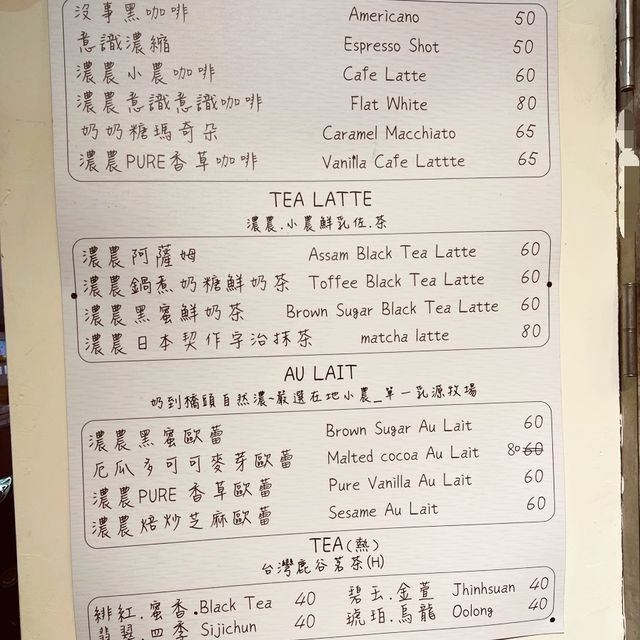 沒事黑咖啡 Americano 50
意識濃縮 Espresso Shot 50
濃農小農咖啡 Cafe Latte 60
濃農意識意識咖啡 Flat White 80
奶奶糖瑪奇朵 Caramel Macchiato 65
濃農PURE香草咖啡 Vanilla Cafe Lattte 65
TEA LATTE
濃農.小農鮮乳佐.茶
濃農阿薩姆 Assam Black Tea Latte 60
濃農鍋煮奶糖鮮奶茶 Toffee Black Tea Latte 60
濃農黑蜜鮮奶茶 Brown Sugar Black Tea Latte 60
濃農日本契作宇治抹茶 matcha latte 80
AU LAIT
奶到橋頭自然濃~嚴選在地小農_單一乳源牧場
濃農黑蜜歐蕾 Brown Sugar Au Lait 60
厄瓜多可可麥芽歐蕾 Malted cocoa Au Lait 80 60
濃農PURE 香草歐蕾 Pure Vanilla Au Lait 60
濃農焙炒芝麻歐蕾 Sesame Au Lait 60
TEA(熱)
台灣鹿谷茗茶(H)
緋紅.蜜香.Black Tea 40 碧玉.金萱 Jhinhsuan 40
翡翠.四季 Sijichun 40 琥珀.烏龍 Oolong 40